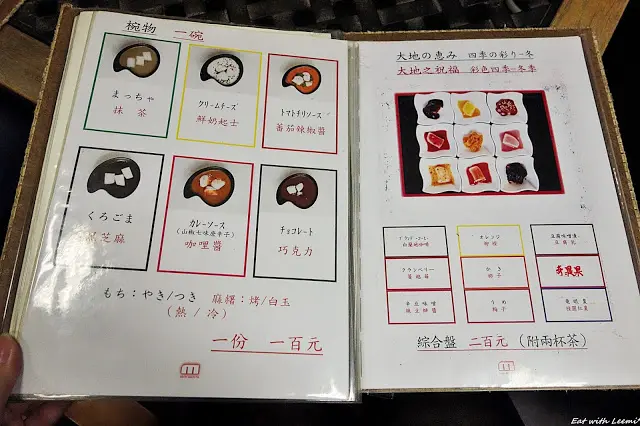 椀物 一碗
まっちゃ
抹茶
クリームチーズ
鮮奶起士
トマトチリソース
蕃茄辣椒醬
くろごま
黑芝麻
カレーソース
(山椒七味唐辛子)
咖哩醬
チョコレート
巧克力
もち:やき/つき 麻糬:烤/白玉
(熱 / 冷)
一份 一百元
大地の恵み 四季の彩り-冬
大地之祝福 彩色四季-冬季
オレンジ
クランベリー
蔓越莓
かき
柿子
奇異果
うめ
梅子
綜合盤 二百元 (附兩杯茶)
Eat with Leemi